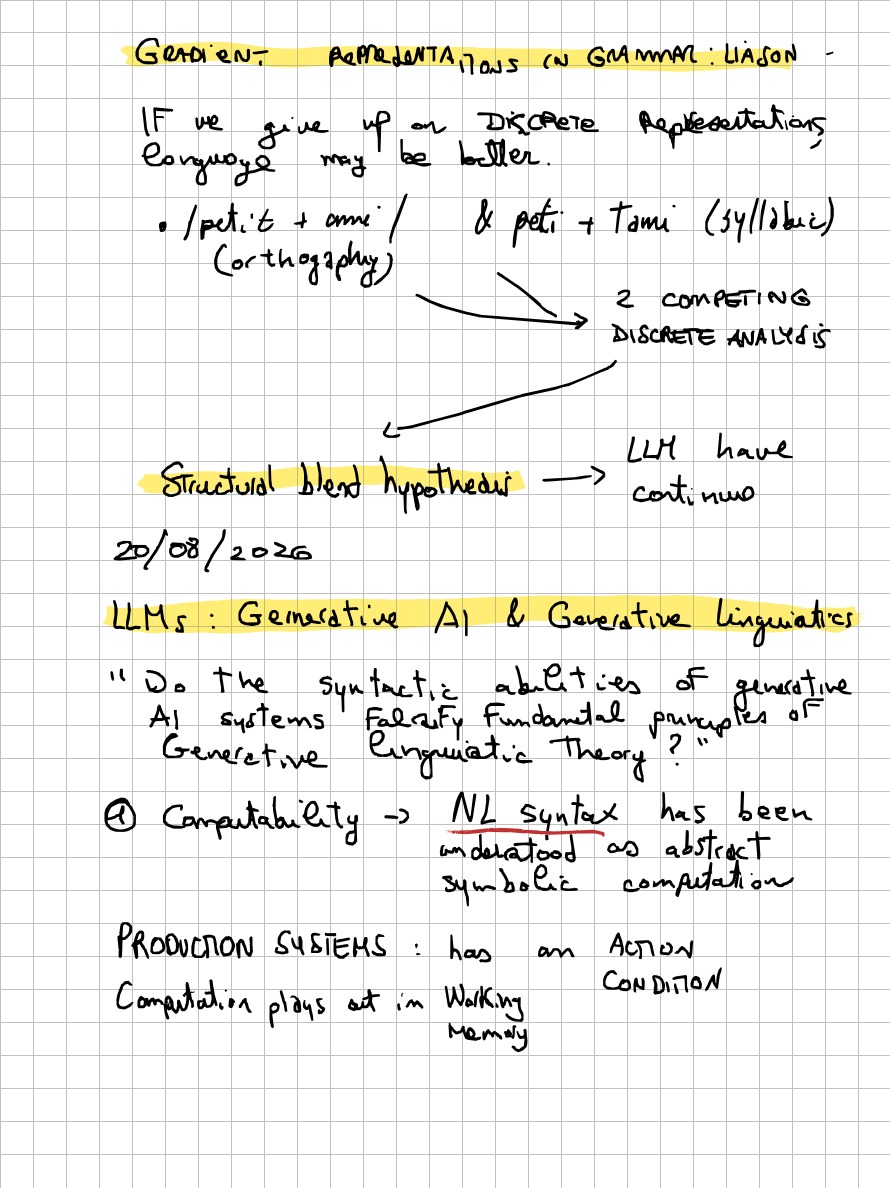 GRADIENT REPRESENTATIONS IN GRAMMAR : LIAISON -
IF we give up on DISCRETE Representations,
language may be better.
• /petit + ami/ & peti + Tami (syllabic)
(orthography)
2 COMPETING
DISCRETE ANALYSIS
Structural blend hypothesis → LLM have
continuo
20/08/2026
LLMs : Generative AI & Generative linguistics
"Do the syntactic abilities of generative
AI systems Falsify Fundametal principles of
Generative linguistic Theory?"
① Computability → NL syntax has been
understood as abstract
symbolic computation
PRODUCTION SYSTEMS : has an ACTION
CONDITION
Computation plays out in Working
Memory